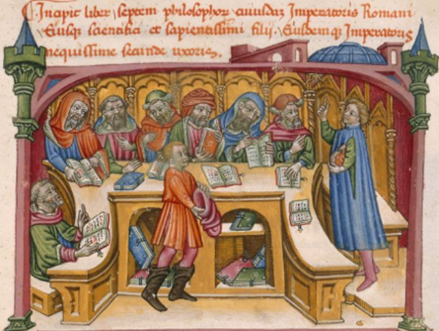 Incipit liber septem philosophor cuiusdã Imperatoris Romani
Eiusq̃ scientifici et sapientissimi filij. Eiusdemq̃ Imperatoris
nequissime secunde uxoris.